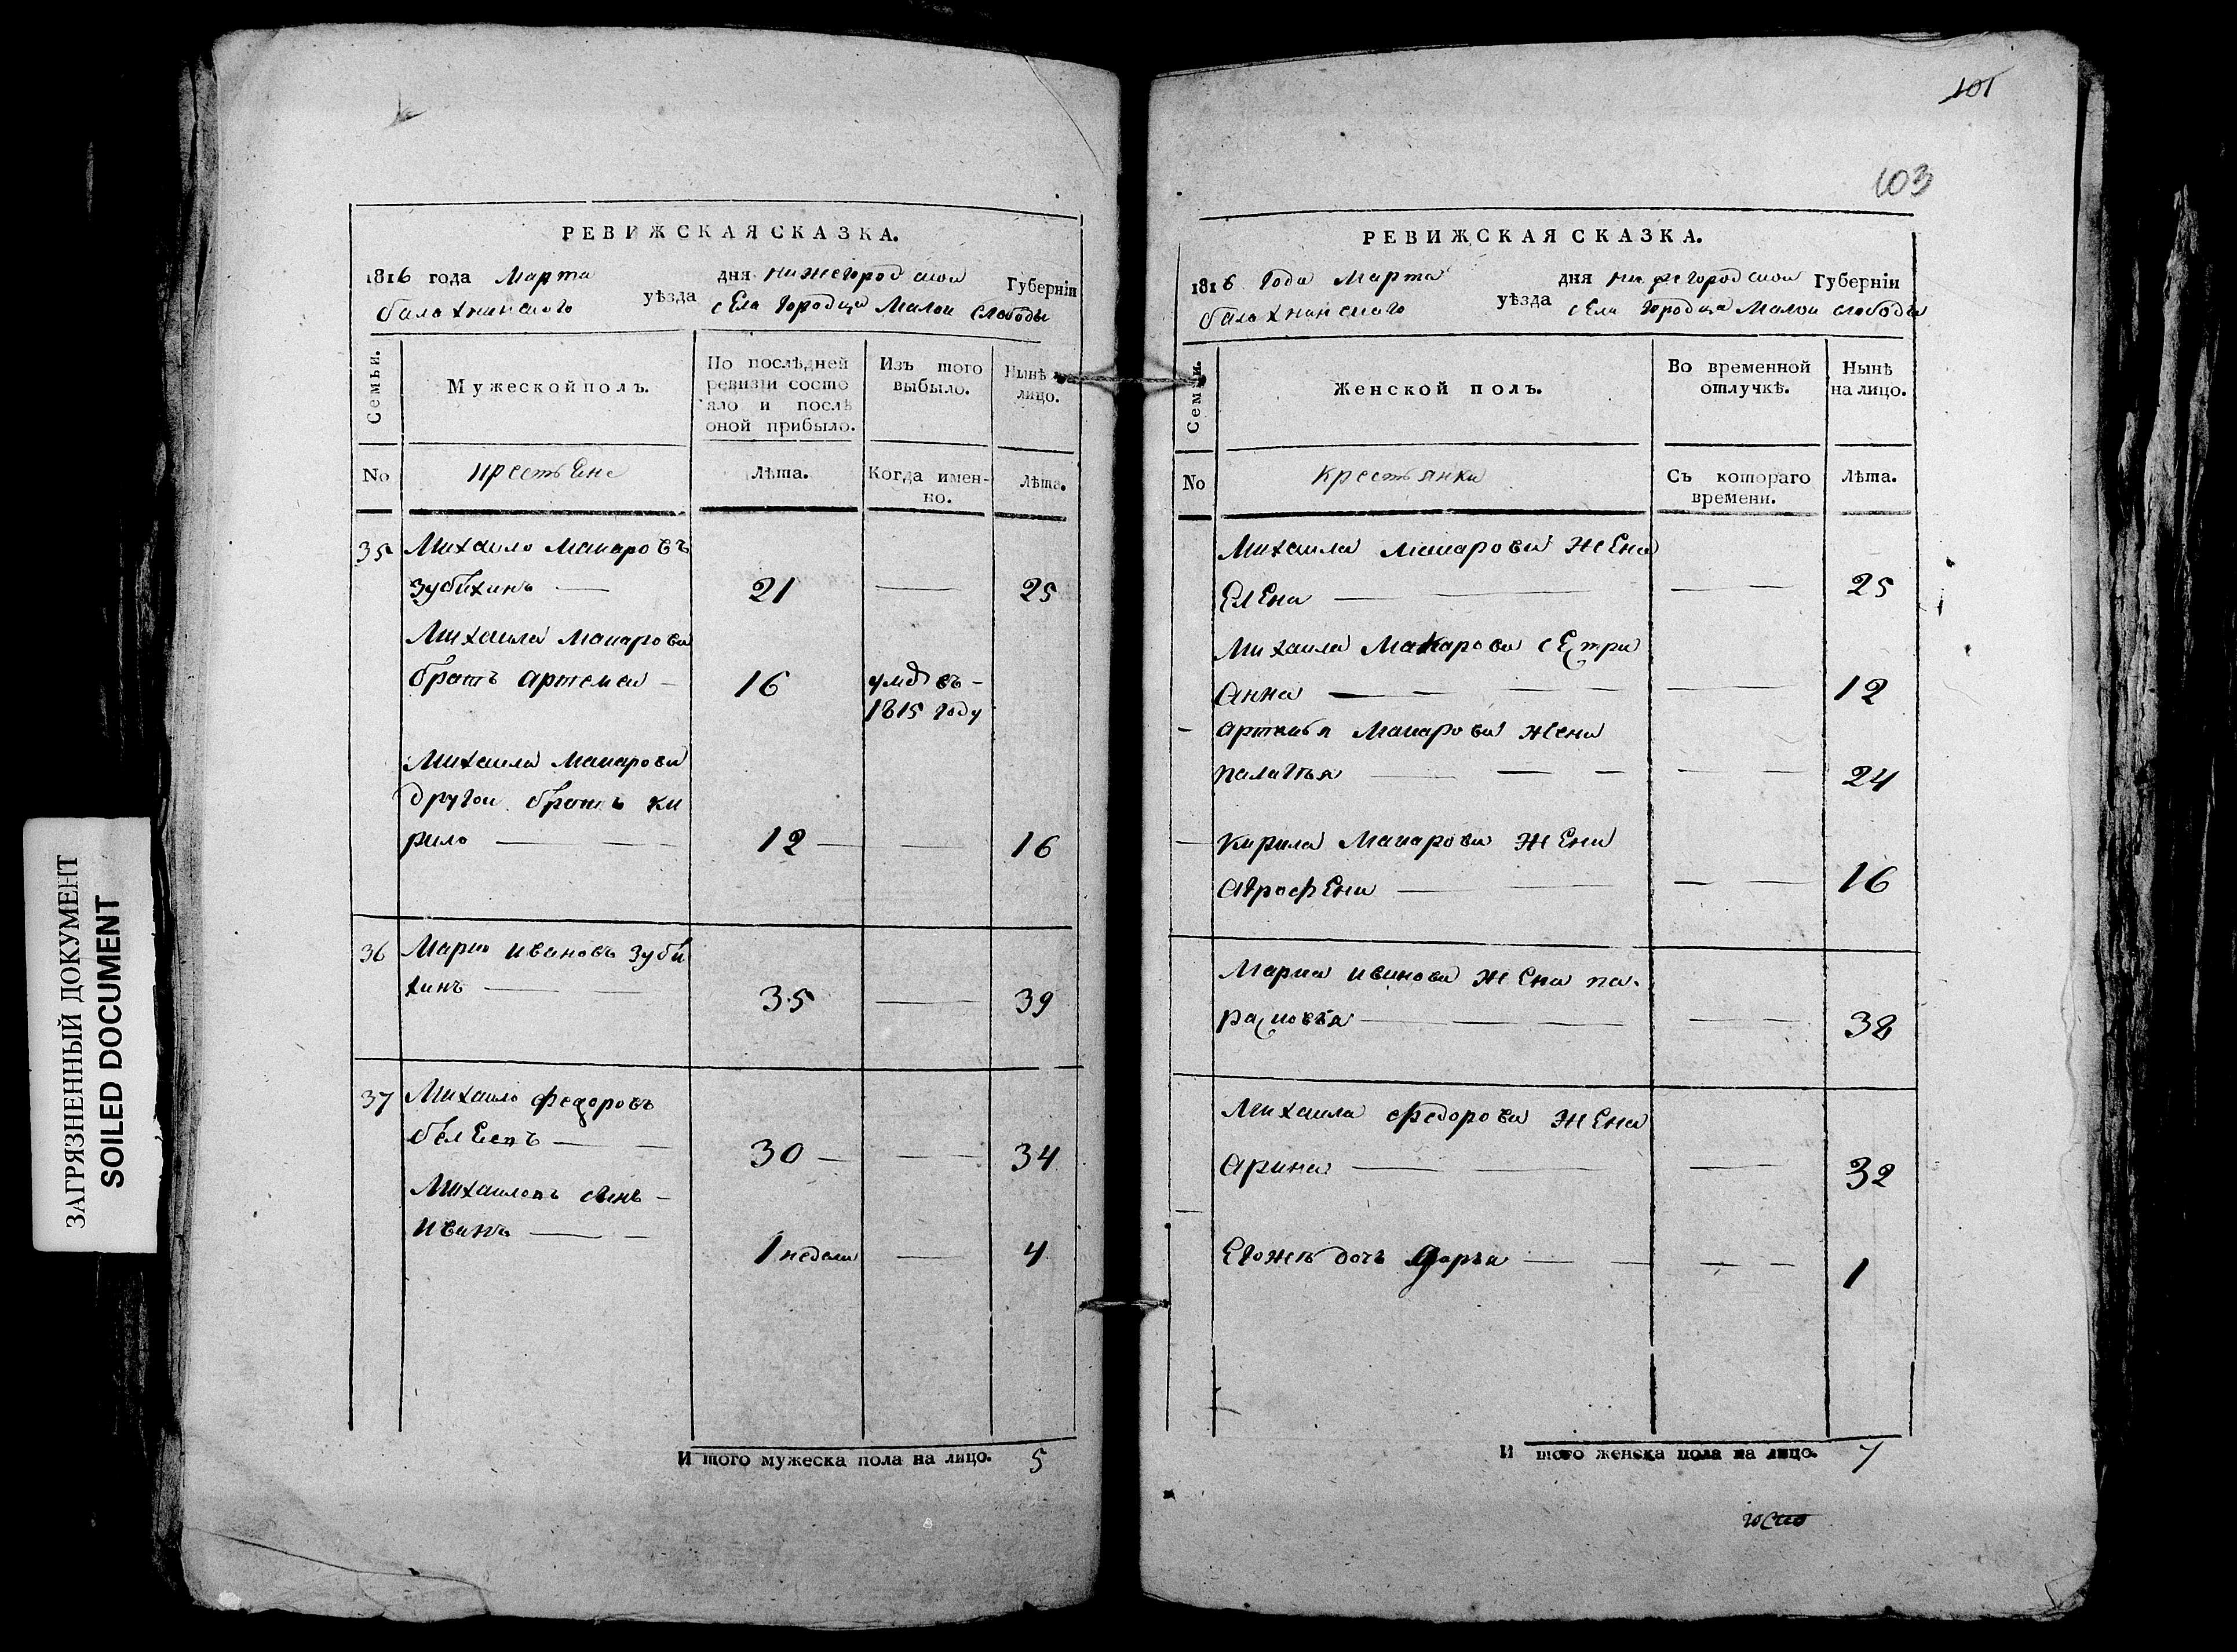 РЕВИЖСКАЯ СКАЗКА.
1816 года Марта дня нижегородскои Губерніи
балахнинского уѣзда сЕла Городца Малои слободы
Семьи.
Мужеской полъ.
По послѣдней ревизіи состояло и послѣ оной прибыло.
Изъ того выбыло.
Нынѣ на лицо.
No
крестьЕне
Лѣта.
Когда именно.
Лѣта.
35 Михаило макаровъ
зубихинъ — 21 — 25
Михаила макарова
братъ артемеи — 16 умѣ въ -
1815 году
Михаила макарова
другои братъ ки
рило — — 12 — — 16
36 Марко ивановъ зуби
хинъ — — 35 — 39
37 Михаило федоровъ
— — 30 — — — 34
Михаиловъ сынъ -
иванъ — - 1 недели — 4
И того мужеска пола на лицо. 5
101
103
РЕВИЖСКАЯ СКАЗКА.
1816 Года Марта дня нижегородскои Губерніи
балахнинского уѣзда сЕла Городца Малои слободы
Семьи.
Женской полъ.
Во временной отлучкѣ.
Нынѣ на лицо.
No
Крестьянки
Съ котораго времени.
Лѣта.
Михаила макарова жЕна
Елена — — — — 25
Михаила Макарова сЕстра
Анна — — — — — — 12
- артемья Макарова жена
палагья — — — — — 24
— кирила Макарова жЕна
агрофЕна — — — — 16
Марка иванова жЕна па-
расковья — — — — — 38
Михаила федорова жЕна
арина — — — 32
Егожъ дочь дарья — — — — 1
И того женска пола на лицо. 7